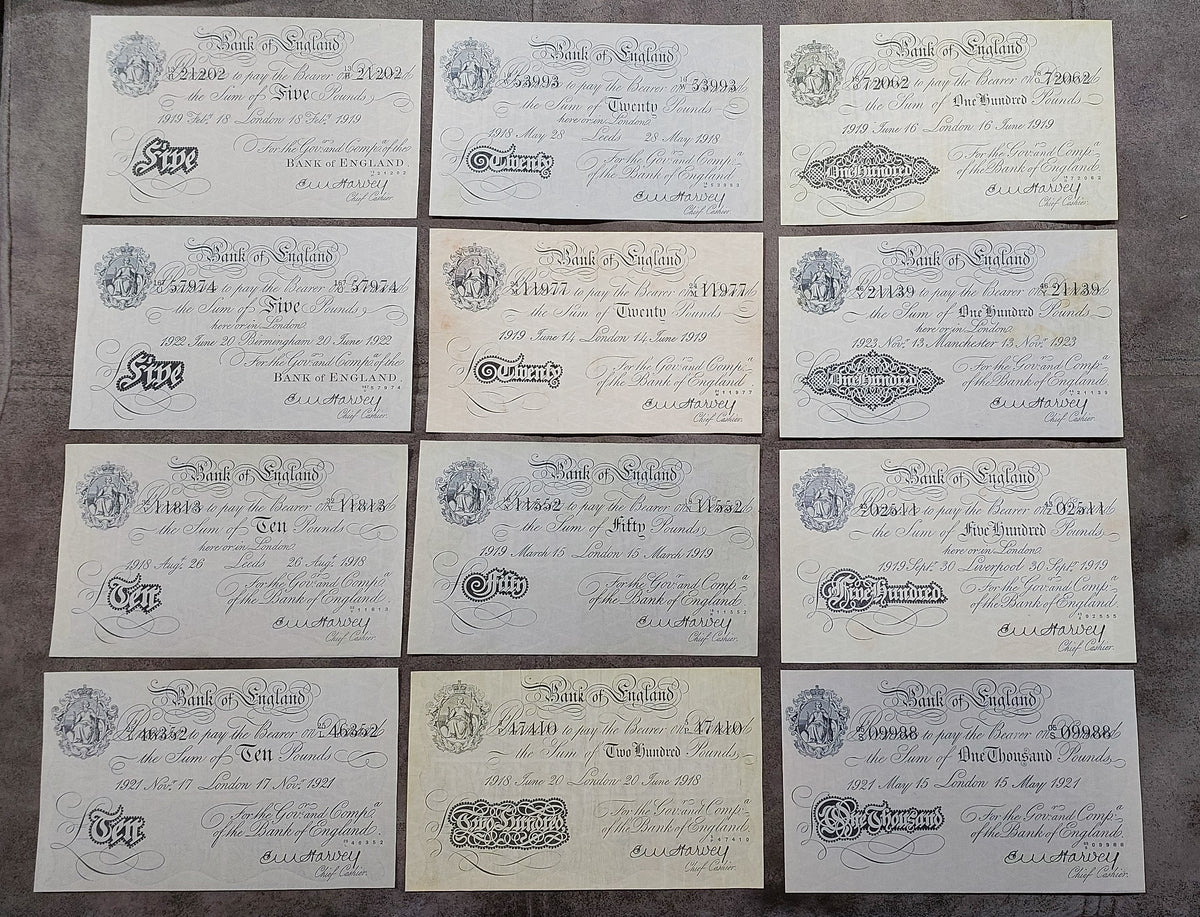 Bank of England
21202 to pay the Bearer on 21202
the Sum of Five Pounds
1919 Feb. 18 London 18 Feb. 1919
Five
For the Gov.r and Comp.a of the
BANK OF ENGLAND.
E M Harvey
Chief Cashier.
Bank of England
53993 to pay the Bearer on 53993
the Sum of Twenty Pounds
here or in London
1918 May 28 Leeds 28 May 1918
Twenty
For the Gov.r and Comp.a
of the Bank of England
E M Harvey
Chief Cashier.
Bank of England
72062 to pay the Bearer on 72062
the Sum of One Hundred Pounds
1919 June 16 London 16 June 1919
One Hundred
For the Gov.r and Comp.a
of the Bank of England
E M Harvey
Chief Cashier.
Bank of England
57974 to pay the Bearer on 57974
the Sum of Five Pounds
here or in London
1922 June 20 Birmingham 20 June 1922
Five
For the Gov.r and Comp.a of the
BANK OF ENGLAND.
E M Harvey
Chief Cashier.
Bank of England
11977 to pay the Bearer on 11977
the Sum of Twenty Pounds
1919 June 14 London 14 June 1919
Twenty
For the Gov.r and Comp.a
of the Bank of England
E M Harvey
Chief Cashier.
Bank of England
21139 to pay the Bearer on 21139
the Sum of One Hundred Pounds
here or in London
1923 Nov.r 13 Manchester 13 Nov.r 1923
One Hundred
For the Gov.r and Comp.a
of the Bank of England
E M Harvey
Chief Cashier.
Bank of England
11813 to pay the Bearer on 11813
the Sum of Ten Pounds
here or in London
1918 Aug.t 26 Leeds 26 Aug.t 1918
Ten
For the Gov.r and Comp.a
of the Bank of England
E M Harvey
Chief Cashier.
Bank of England
11552 to pay the Bearer on 11552
the Sum of Fifty Pounds
1919 March 15 London 15 March 1919
Fifty
For the Gov.r and Comp.a
of the Bank of England
E M Harvey
Chief Cashier.
Bank of England
02511 to pay the Bearer on 02511
the Sum of Five Hundred Pounds
here or in London
1919 Sept. 30 Liverpool 30 Sept. 1919
Five Hundred
For the Gov.r and Comp.a
of the Bank of England
E M Harvey
Chief Cashier.
Bank of England
46352 to pay the Bearer on 46352
the Sum of Ten Pounds
1921 Nov.r 17 London 17 Nov.r 1921
Ten
For the Gov.r and Comp.a
of the Bank of England.
E M Harvey
Chief Cashier.
Bank of England
47410 to pay the Bearer on 47410
the Sum of Two Hundred Pounds
1918 June 20 London 20 June 1918
Two Hundred
For the Gov.r and Comp.a
of the Bank of England
E M Harvey
Chief Cashier.
Bank of England
09988 to pay the Bearer on 09988
the Sum of One Thousand Pounds
1921 May 15 London 15 May 1921
One Thousand
For the Gov.r and Comp.a
of the Bank of England
E M Harvey
Chief Cashier.